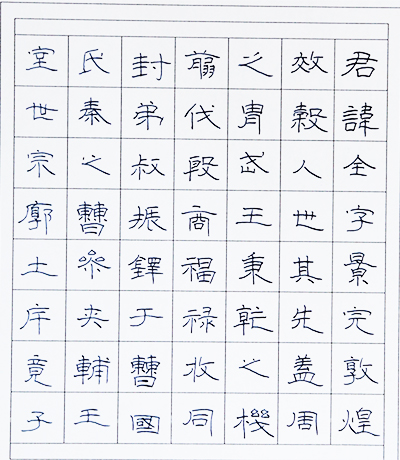 君諱全字景完敦煌
效穀人世其先蓋周
之胄武王秉乾之機
翦伐殷商福禄攸同
封弟叔振鐸于曹國
氏秦之曹參夾輔王
室世宗廓土斥竟子